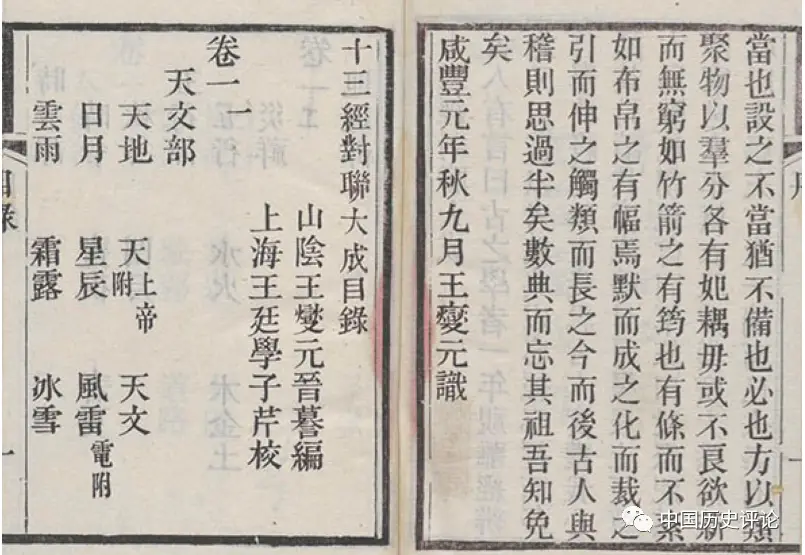 當也設之不當猶不備也必也方以類
聚物以羣分各有妃耦毋或不良欲新
而無窮如竹箭之有筠也有條而不紊
如布帛之有幅焉默而成之化而裁之
引而伸之觸類而長之今而後古人與
稽則思過半矣數典而忘其祖吾知免
矣
咸豐元年秋九月王燮元識
十三經對聯大成目錄
山陰王燮元晉謩編
上海王廷學子芹校
卷一
天文部
天地 天上帝附 天文
日月 星辰 風雷電附
雲雨 霜露 冰雪
目錄
一
中国历史评论